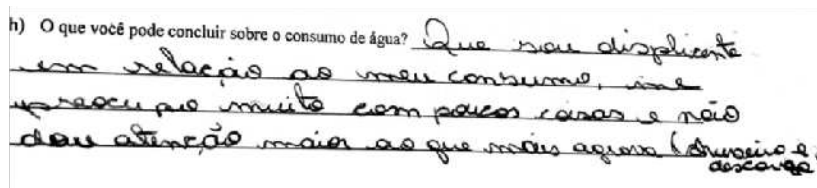 h) O que você pode concluir sobre o consumo de água? Que sou displicente
em relação ao meu consumo, me
preocupo muito com poucas coisas e não
dou atenção maior ao que mais agrava (chuveiro e
descarga